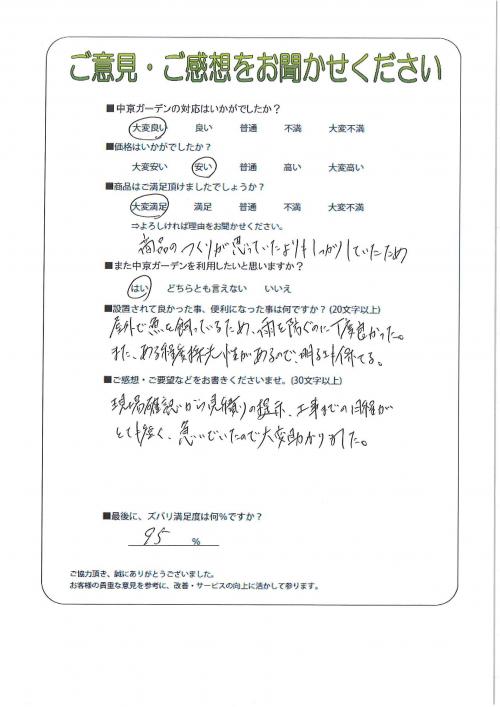 ご意見・ご感想をお聞かせください
■中京ガーデンの対応はいかがでしたか?
大変良い 良い 普通 不満 大変不満
■価格はいかがでしたか?
大変安い 安い 普通 高い 大変高い
■商品はご満足頂けましたでしょうか?
大変満足 満足 普通 不満 大変不満
⇒よろしければ理由をお聞かせください。
商品のつくりが思っていたよりもしっかりしていたため
■また中京ガーデンを利用したいと思いますか?
はい どちらとも言えない いいえ
■設置されて良かった事、便利になった事は何ですか?(20文字以上)
屋外で魚を飼っているため、雨を防ぐのに丁度良かった。
また、ある程度採光性があるので、明るさも保てる。
■ご感想・ご要望などをお書きくださいませ。(30文字以上)
現場確認から見積りの提示、工事までの日程が
とても短く、急いでいたので大変助かりました。
■最後に、ズバリ満足度は何%ですか?
95 %
ご協力頂き、誠にありがとうございました。
お客様の貴重な意見を参考に、改善・サービスの向上に活かして参ります。